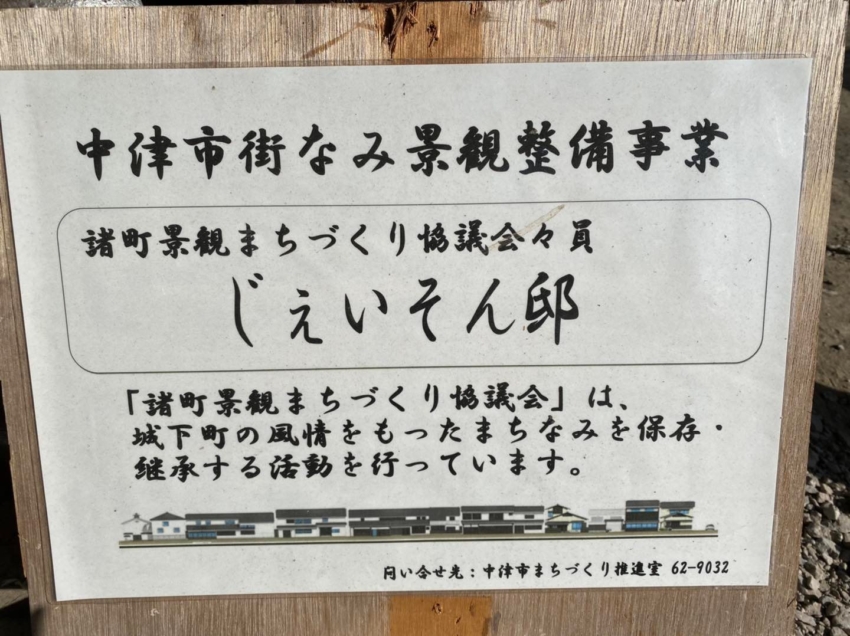 中津市街なみ景観整備事業
諸町景観まちづくり協議会々員
じぇいそん邸
「諸町景観まちづくり協議会」は、
城下町の風情をもったまちなみを保存・
継承する活動を行っています。
問い合せ先：中津市まちづくり推進室 62-9032